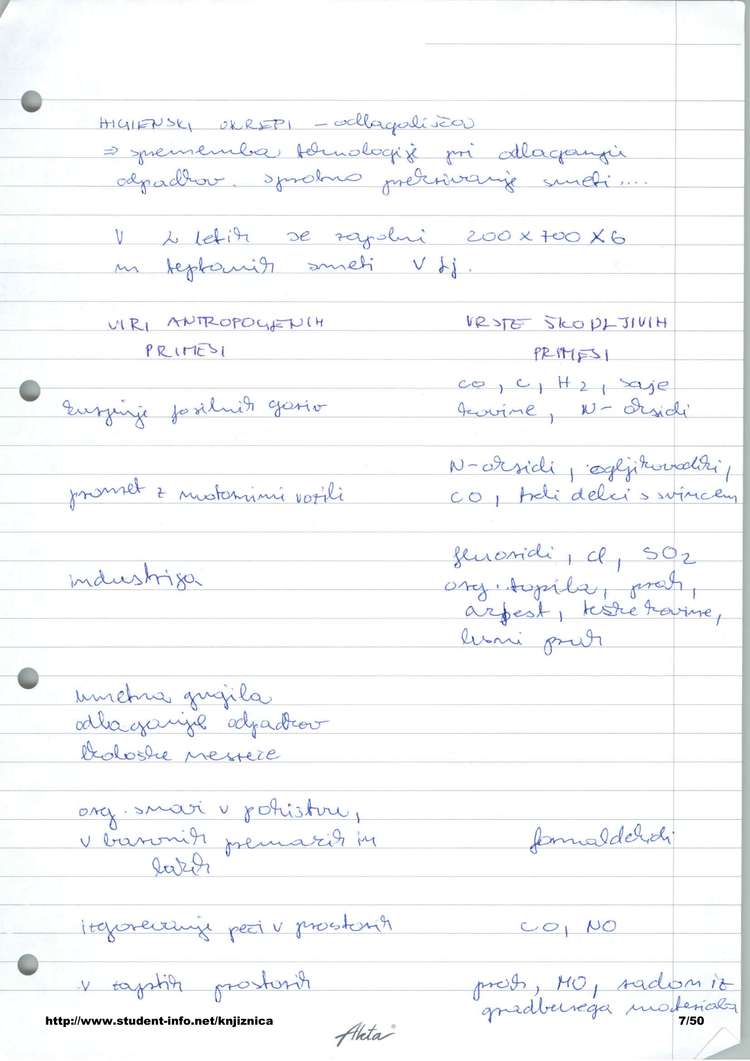 HIGIENSKI UKREPI - odlagališča
⇒ sprememba tehnologije pri odlaganju
odpadkov. sprotno prekrivanje smeti....
V 2 letih se zapolni 200 x 700 x 6
m teptanih smeti v Lj.
VIRI ANTROPOGENIH
PRIMESI
VRSTE ŠKODLJIVIH
PRIMESI
CO, C, H2, saje
kurjenje fosilnih goriv
kovine, N-oksidi
N-oksidi, ogljikovodiki,
promet z motornimi vozili
CO, trdi delci s svincem
fluoridi, Cl, SO2
industrija
org. topila, prah,
azbest, težke kovine,
lesni prah
umetna gnojila
odlaganje odpadkov
Ekološke nesreče
org. snovi v pohištvu,
v barvnih premazih in
lakih
formaldehidi
izgorevanje peči v prostorih
CO, NO
v zaprtih prostorih
prah, MO, radon iz
gradbenega materiala
http://www.student-info.net/knjiznica
7/50
Akta